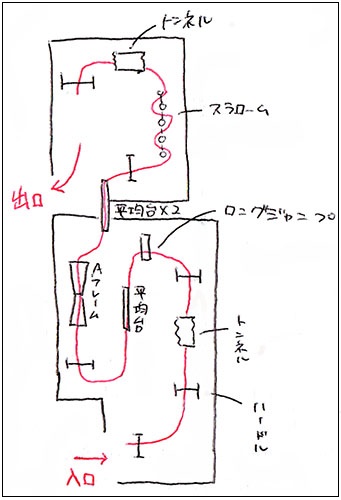 トンネル
スラローム
出口
平均台×2
ロングジャンプ
Aフレーム
平均台
トンネル
ハードル
入口